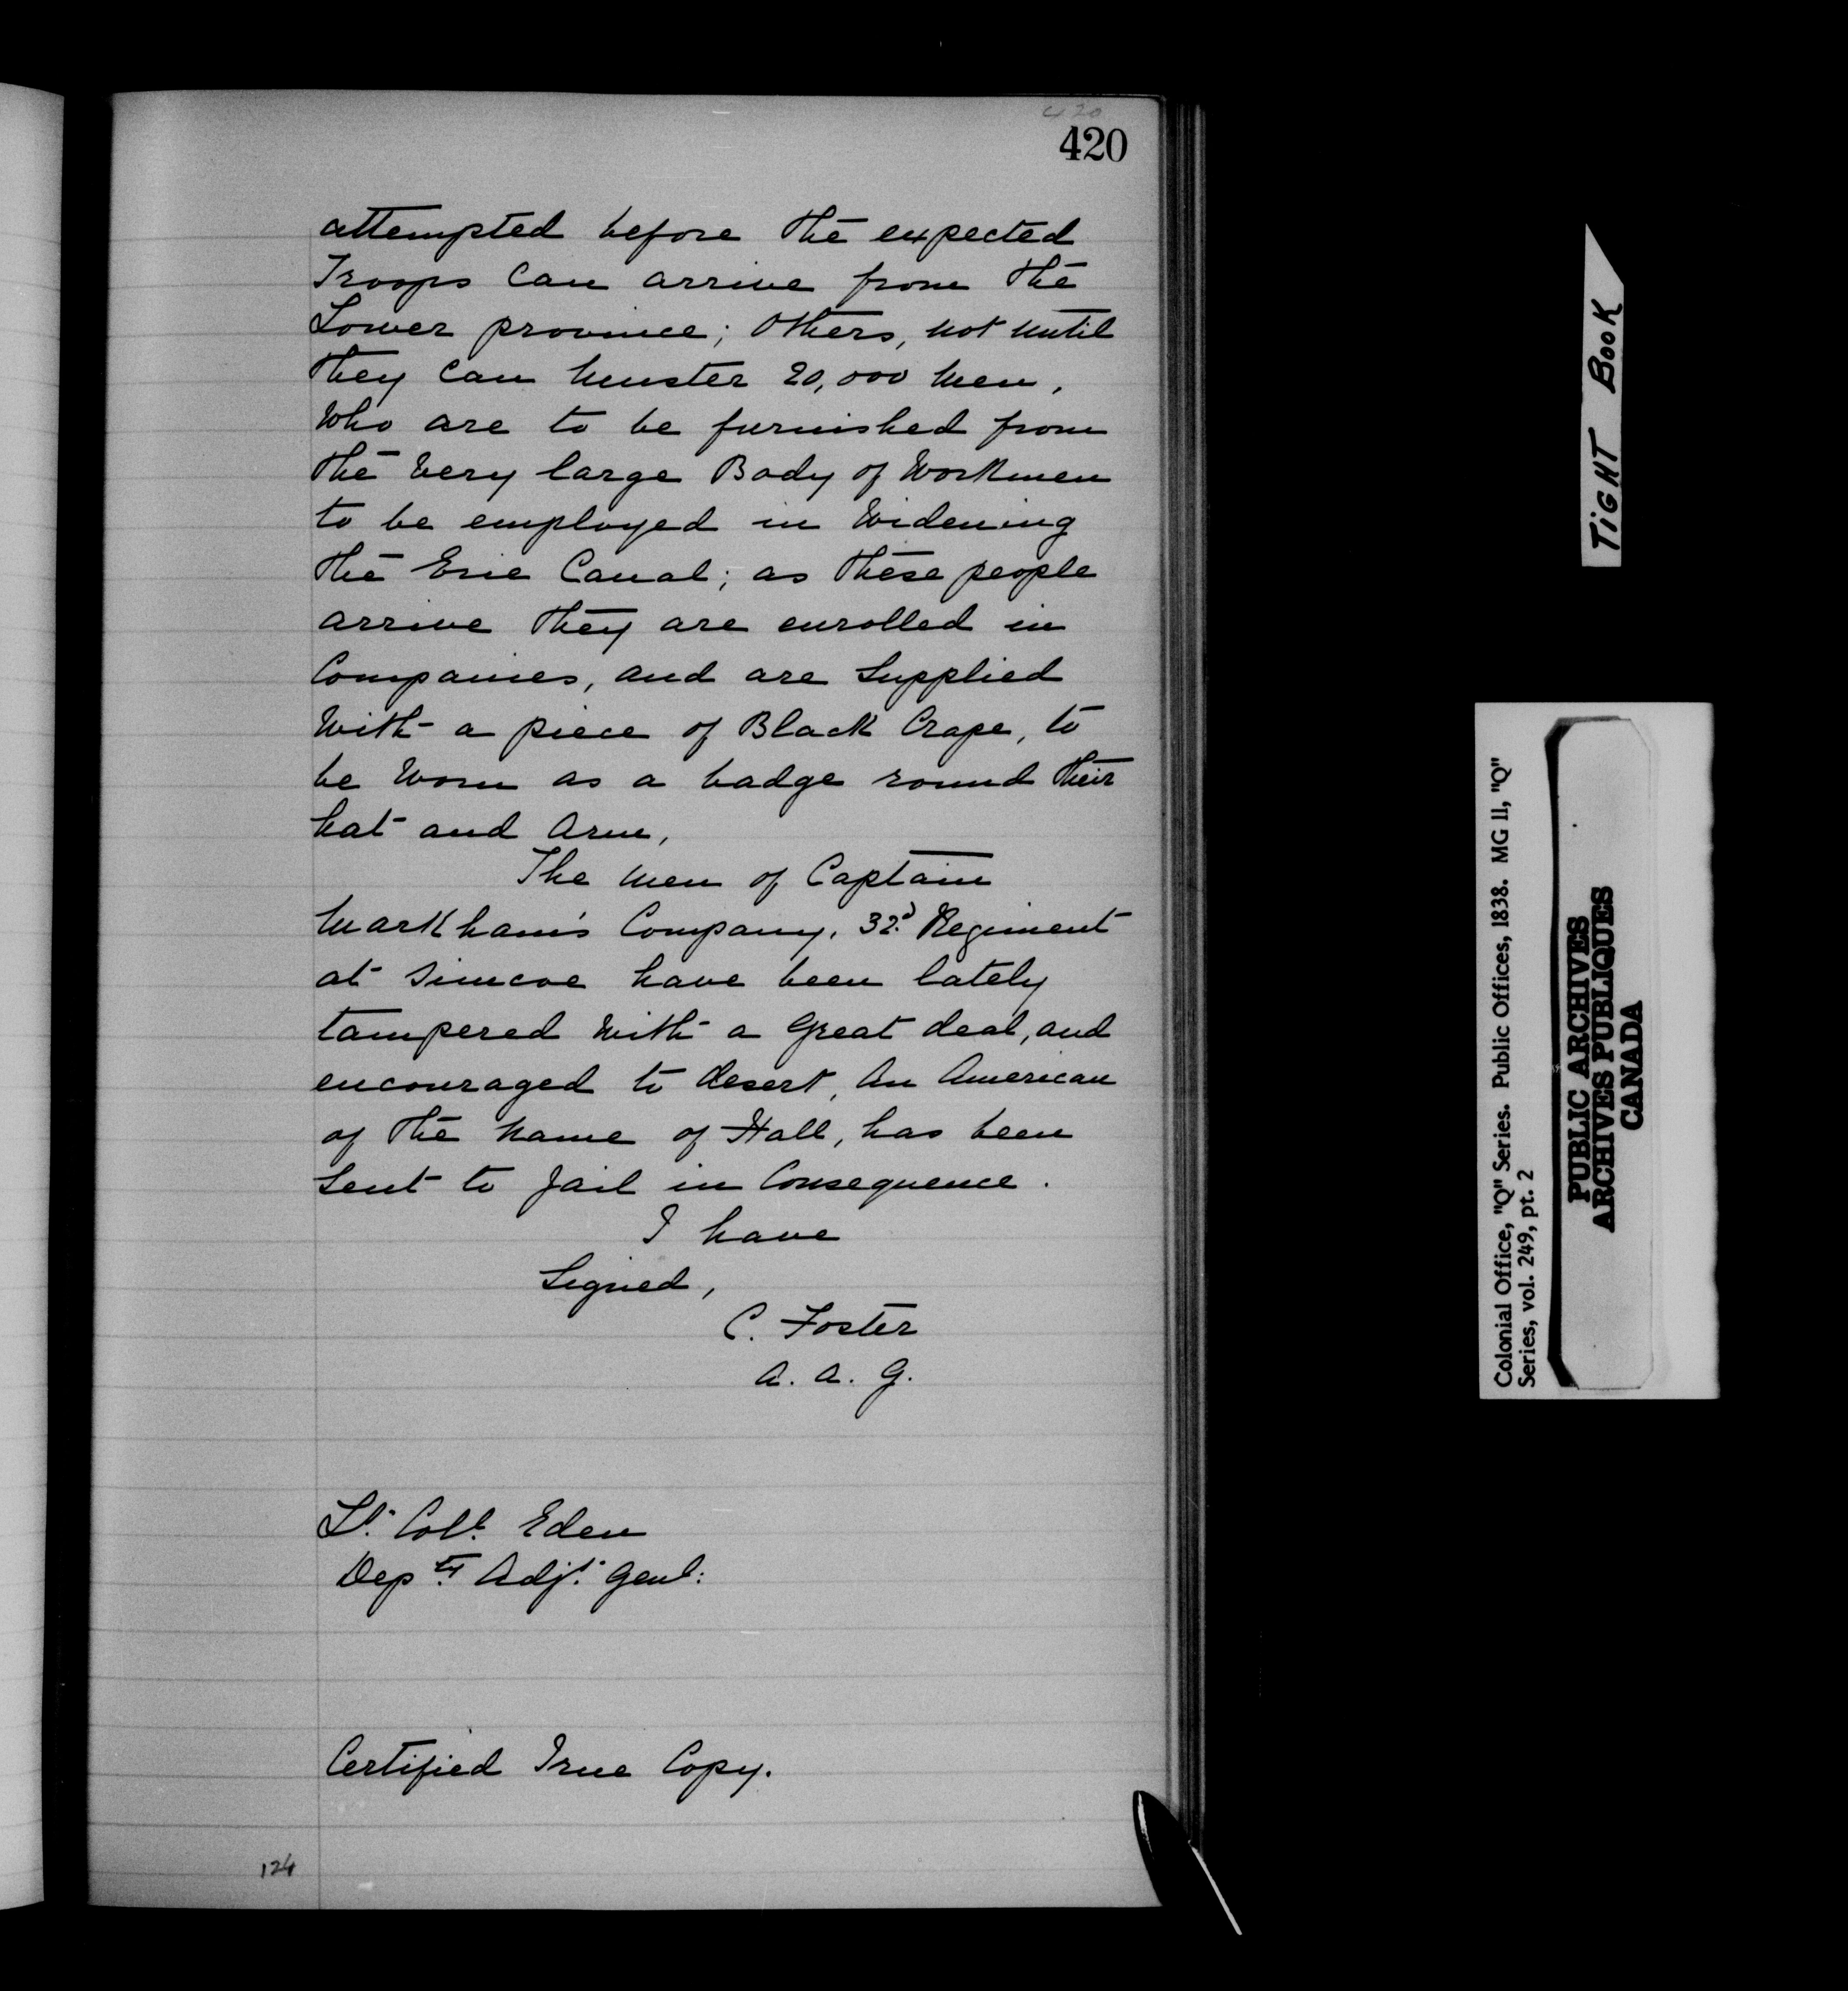 420
420
attempted before the expected
Troops can arrive from the
Lower province; Others, not until
they can Muster 20,000 Men,
Who are to be furnished from
the Very large Body of Workmen
to be employed in Widening
the Erie Canal; as these people
arrive they are enrolled in
Companies, and are Supplied
With a piece of Black Crape, to
be Worn as a badge round their
hat and Arm,
The Men of Captain
Markham's Company, 32d. Regiment
at Simcoe have been lately
tampered With a Great deal, and
encouraged to desert, An American
of the Name of Hall, has been
Sent to Jail in Consequence.
I have
Signed,
C. Foster
A. A. G.
Lt. Coll. Eden
Depty. Adjt. Genl:
Certified True Copy.
124
TIGHT BOOK
Colonial Office, "Q" Series. Public Offices, 1838. MG 11, "Q"
Series, vol. 249, pt. 2
PUBLIC ARCHIVES
ARCHIVES PUBLIQUES
CANADA